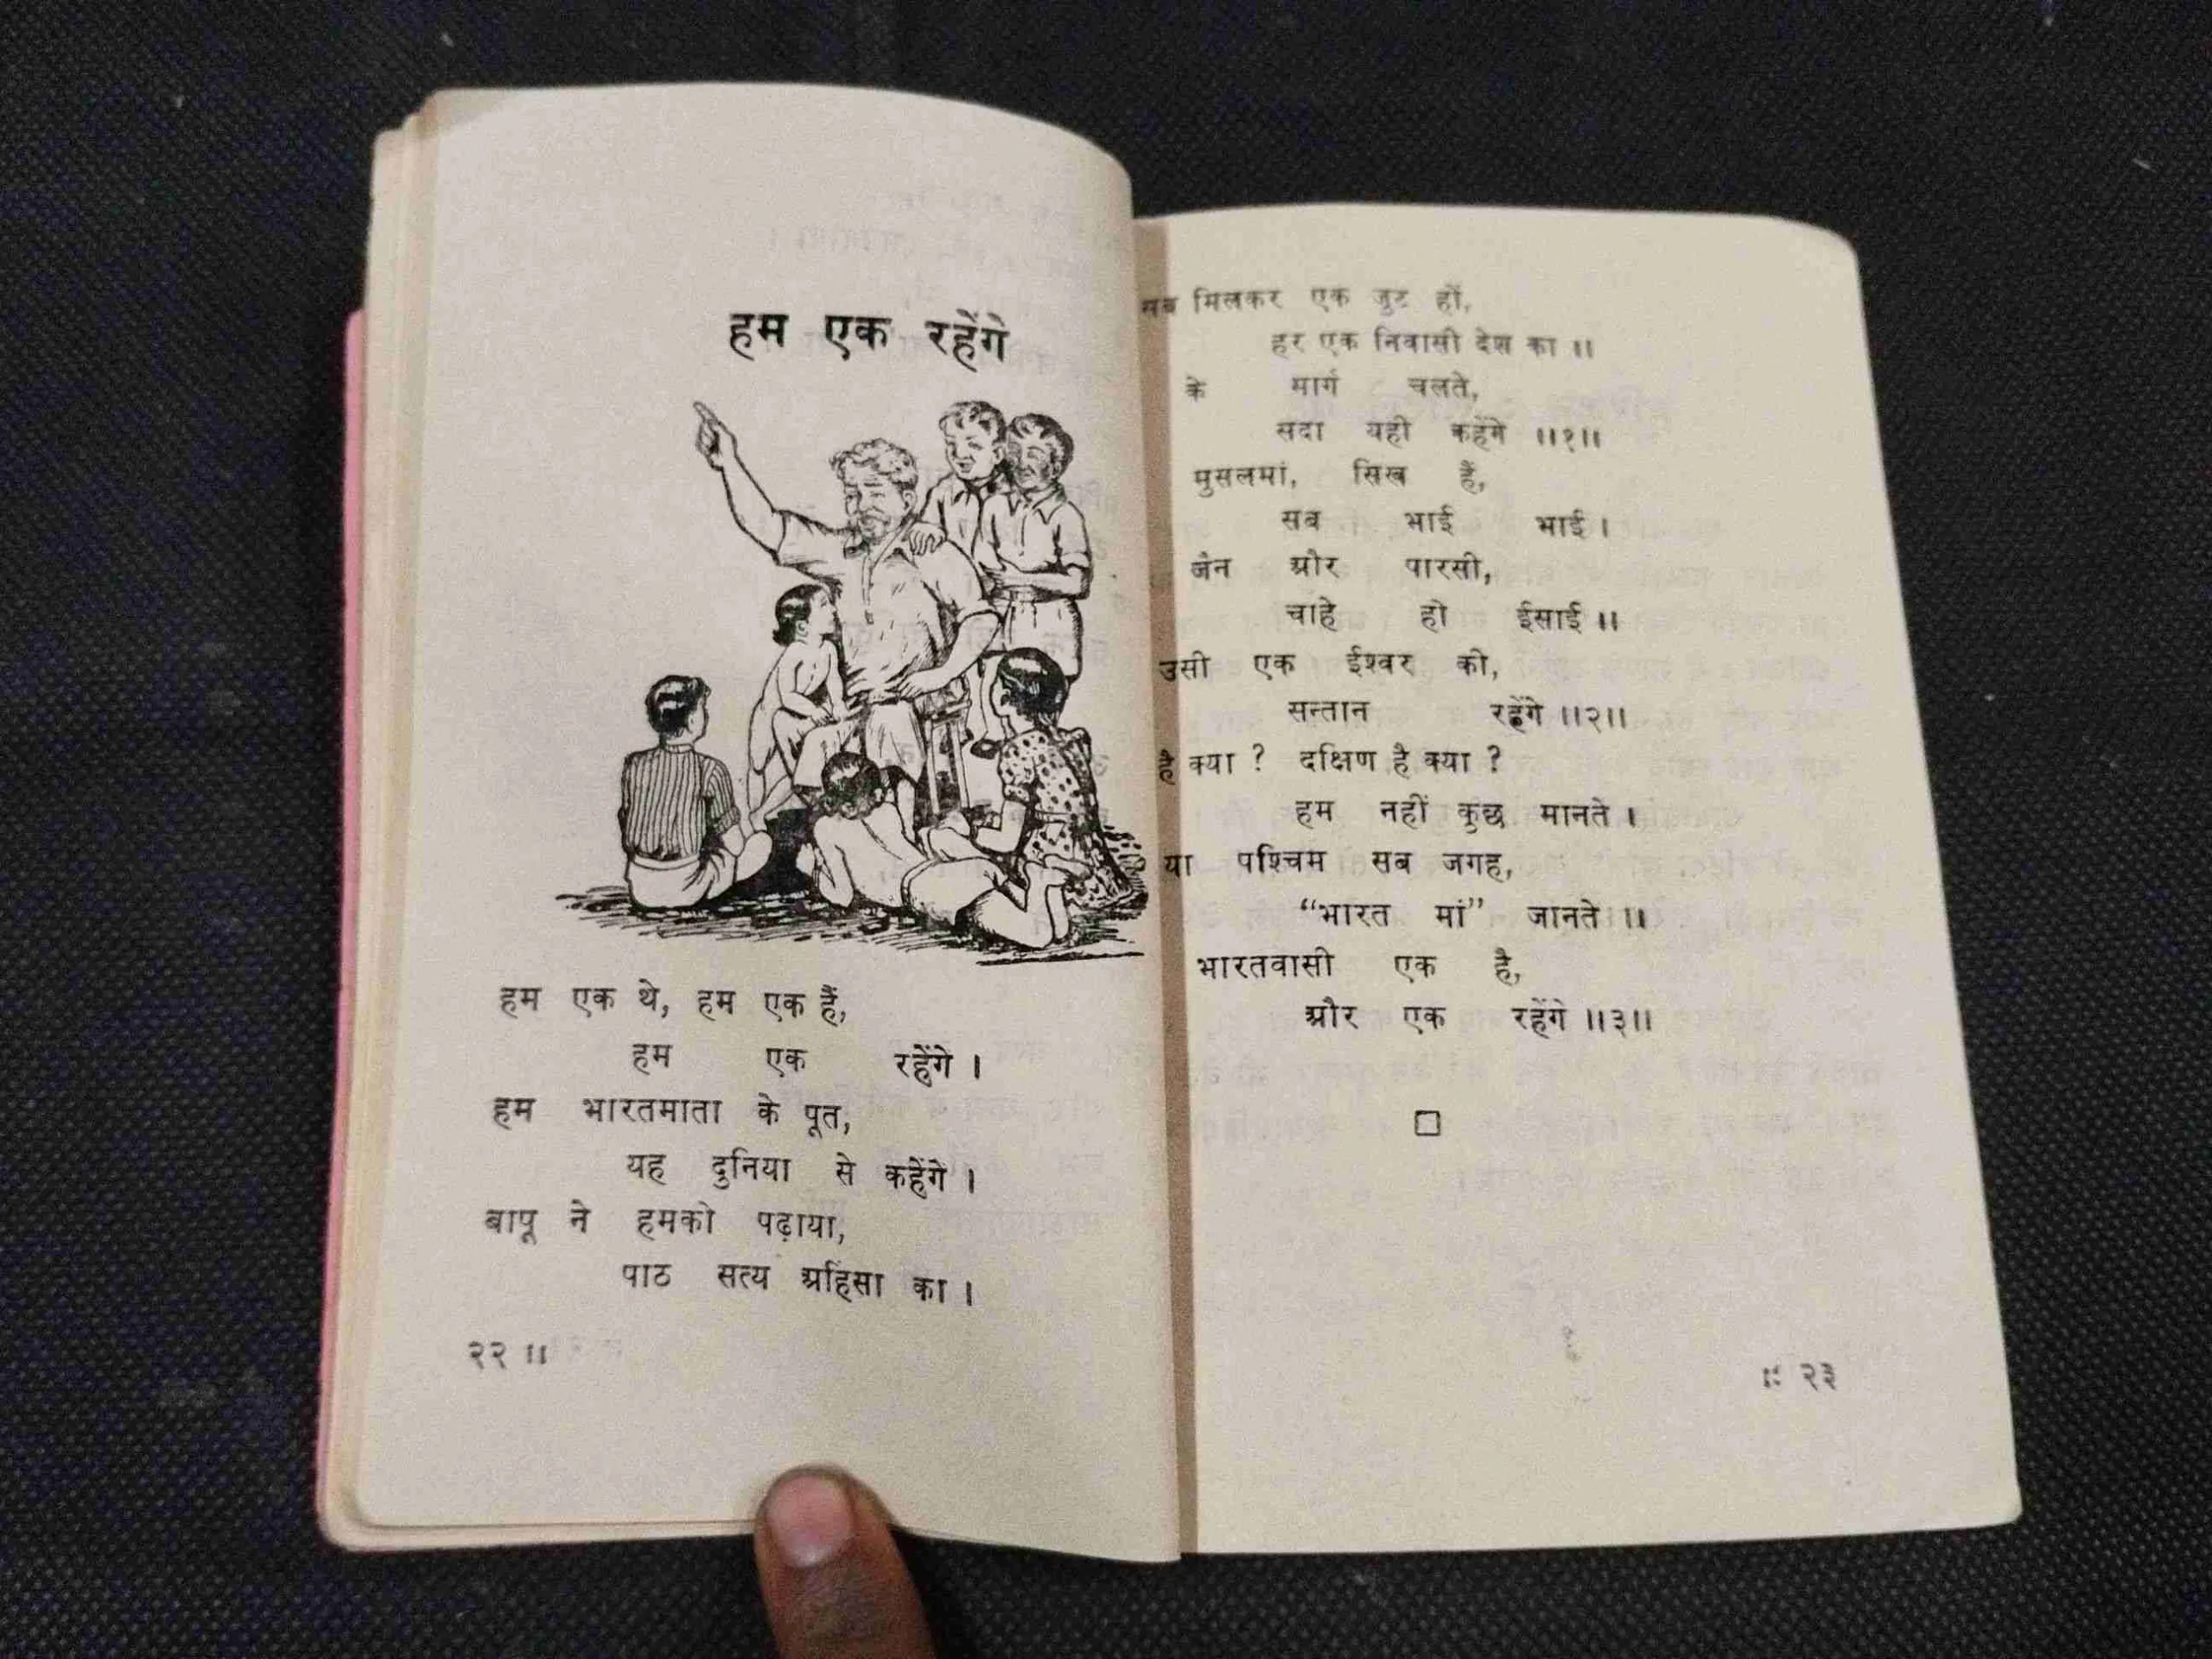 हम एक रहेंगे
हम एक थे, हम एक हैं,
हम एक रहेंगे ।
हम भारतमाता के पूत,
यह दुनिया से कहेंगे ।
बापू ने हमको पढ़ाया,
पाठ सत्य अहिंसा का ।
२२ ॥
सब मिलकर एक जुट हों,
हर एक निवासी देश का ॥
के मार्ग चलते,
सदा यही कहेंगे ॥१॥
मुसलमां, सिख हैं,
सब भाई भाई ।
जैन और पारसी,
चाहे हो ईसाई ॥
उसी एक ईश्वर की,
सन्तान रहेंगे ॥२॥
है क्या ? दक्षिण है क्या ?
हम नहीं कुछ मानते ।
या पश्चिम सब जगह,
“भारत मां” जानते ॥
भारतवासी एक है,
और एक रहेंगे ॥३॥
॥ २३